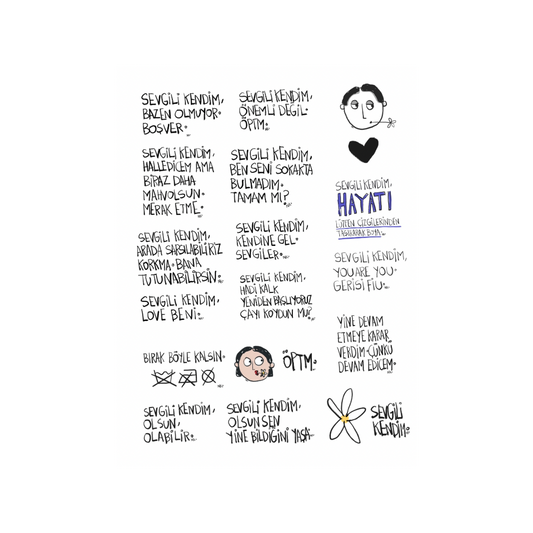 SEVGİLİ KENDİM,
BAZEN OLMUYOR.
BOŞVER.
SEVGİLİ KENDİM,
HALLEDİCEM AMA
BİRAZ DAHA
MAHVOLSUN.
MERAK ETME.
SEVGİLİ KENDİM,
ARADA SARSILABİLİRİZ
KORKMA. BANA
TUTUNABİLİRSİN.
SEVGİLİ KENDİM,
LOVE BENİ.
BIRAK BÖYLE KALSIN.
SEVGİLİ KENDİM,
OLSUN,
OLABİLİR.
SEVGİLİ KENDİM,
ÖNEMLİ DEĞİL.
ÖPTM.
SEVGİLİ KENDİM,
BEN SENİ SOKAKTA
BULMADIM.
TAMAM MI?
SEVGİLİ KENDİM,
KENDİNE GEL.
SEVGİLER.
SEVGİLİ KENDİM,
HADİ KALK
YENİDEN BAŞLIYORUZ
ÇAYI KOYDUN MU?
ÖPTM.
SEVGİLİ KENDİM,
OLSUN SEN
YİNE BİLDİĞİNİ YAŞA.
SEVGİLİ KENDİM,
HAYATI
LÜTFEN ÇİZGİLERİNDEN
TAŞIRARAK BOYA.
SEVGİLİ KENDİM,
YOU ARE YOU.
GERİSİ FIU.
YİNE DEVAM
ETMEYE KARAR
VERDİM. ÇÜNKÜ
DEVAM EDİCEM.
SEVGİLİ
KENDİM.